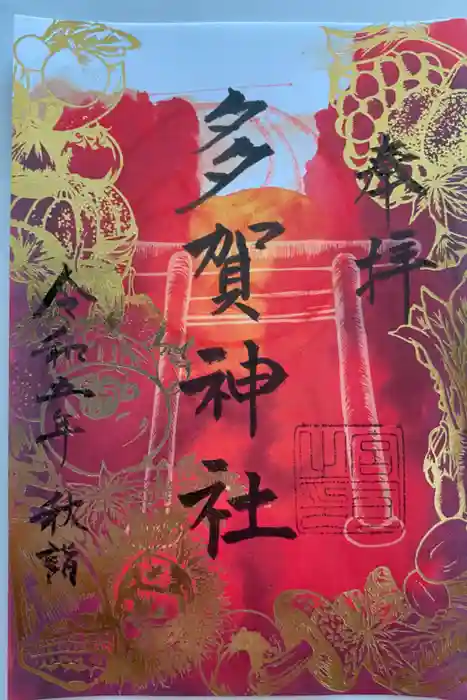 奉拝
多賀神社
令和五年 秋詣